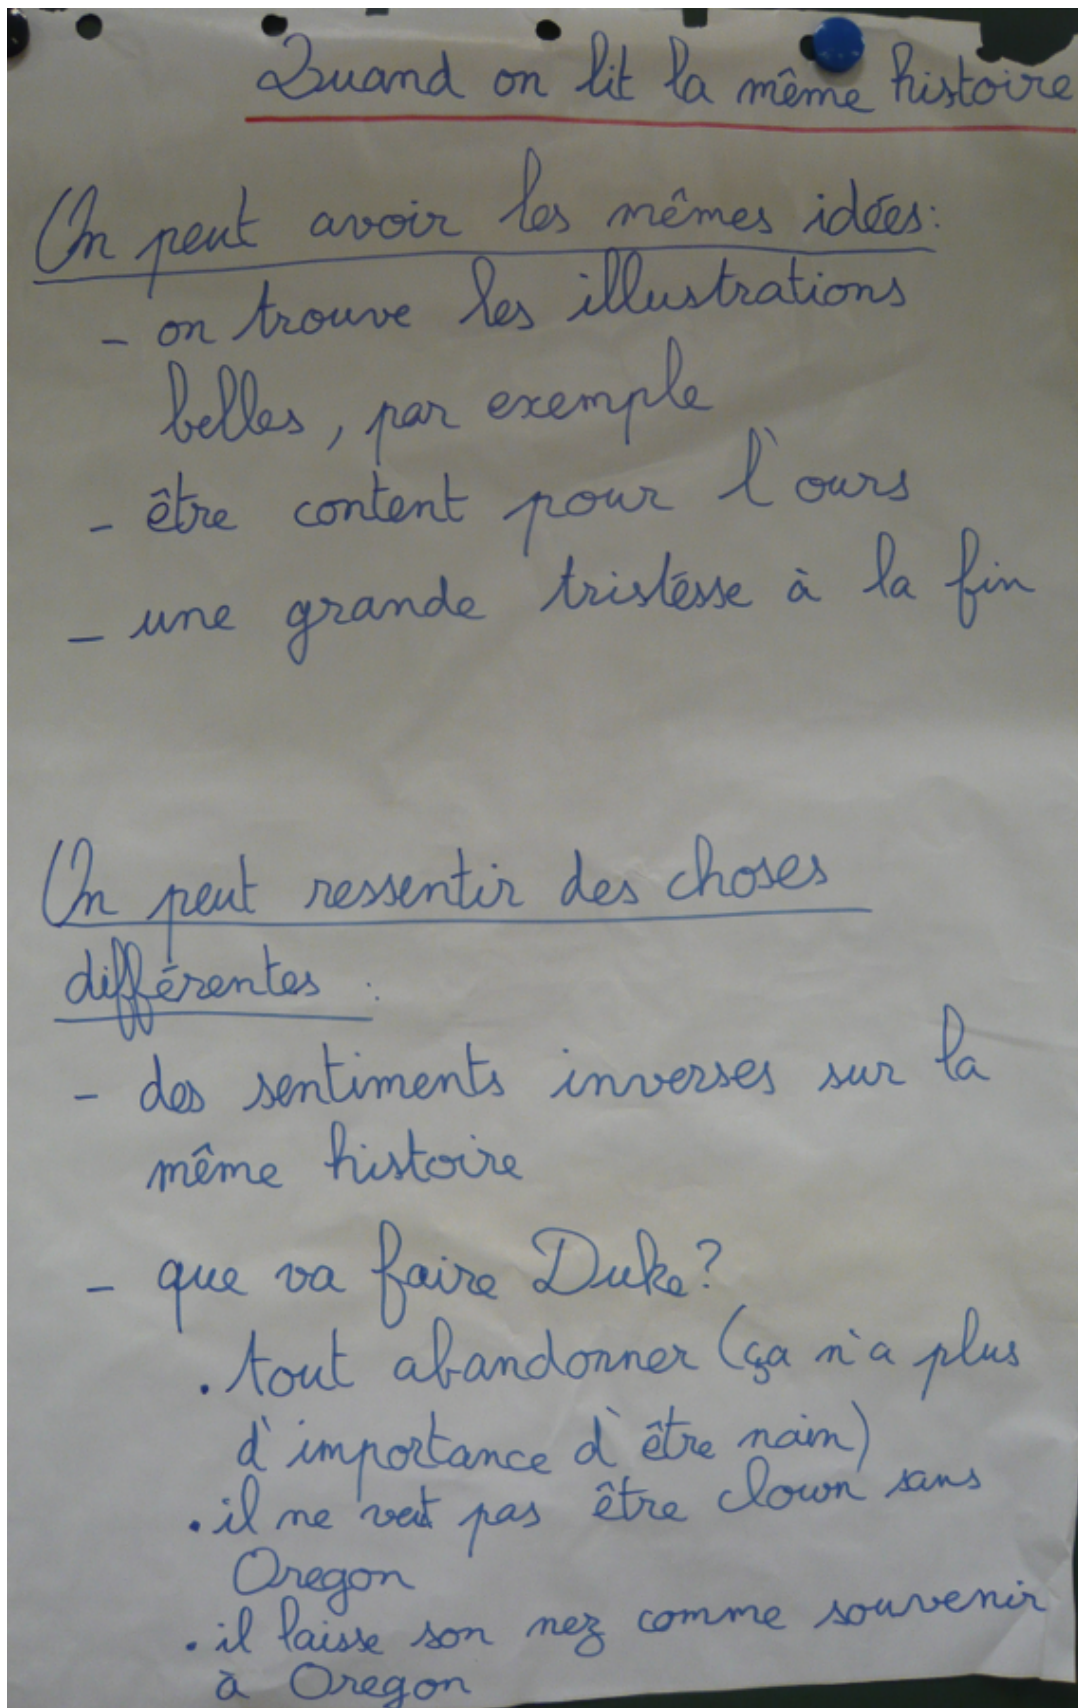 Quand on lit la même histoire
On peut avoir les mêmes idées:
- on trouve les illustrations
belles, par exemple
- être content pour l'ours
- une grande tristesse à la fin
On peut ressentir des choses
différentes :
- des sentiments inverses sur la
même histoire
- que va faire Duke?
. tout abandonner (ça n'a plus
d'importance d'être nain)
. il ne veut pas être clown sans
Oregon
. il laisse son nez comme souvenir
à Oregon